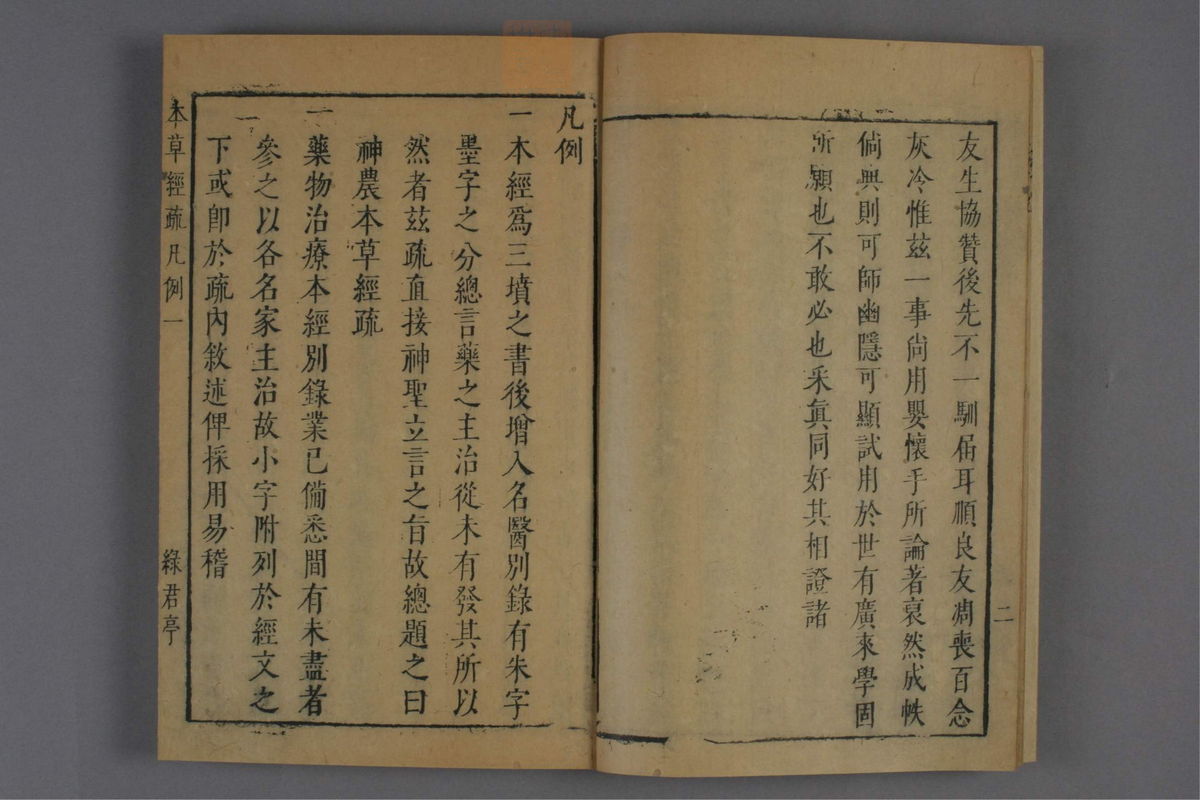 友生協贊後先不一馴屆耳順良友凋喪百念
灰冷惟茲一事尙用嬰懷手所論著裒然成帙
倘與則可師幽隱可顯試用於世有廣來學固
所願也不敢必也采眞同好其相證諸
二
凡例
一本經爲三墳之書後增入名醫別錄有朱字
墨字之分總言藥之主治從未有發其所以
然者茲疏直接神聖立言之旨故總題之曰
神農本草經疏
一藥物治療本經別錄業已備悉間有未盡者
參之以各名家主治故小字附列於經文之
下或卽於疏內敘述俾採用易稽
本草經疏凡例一
綠君亭